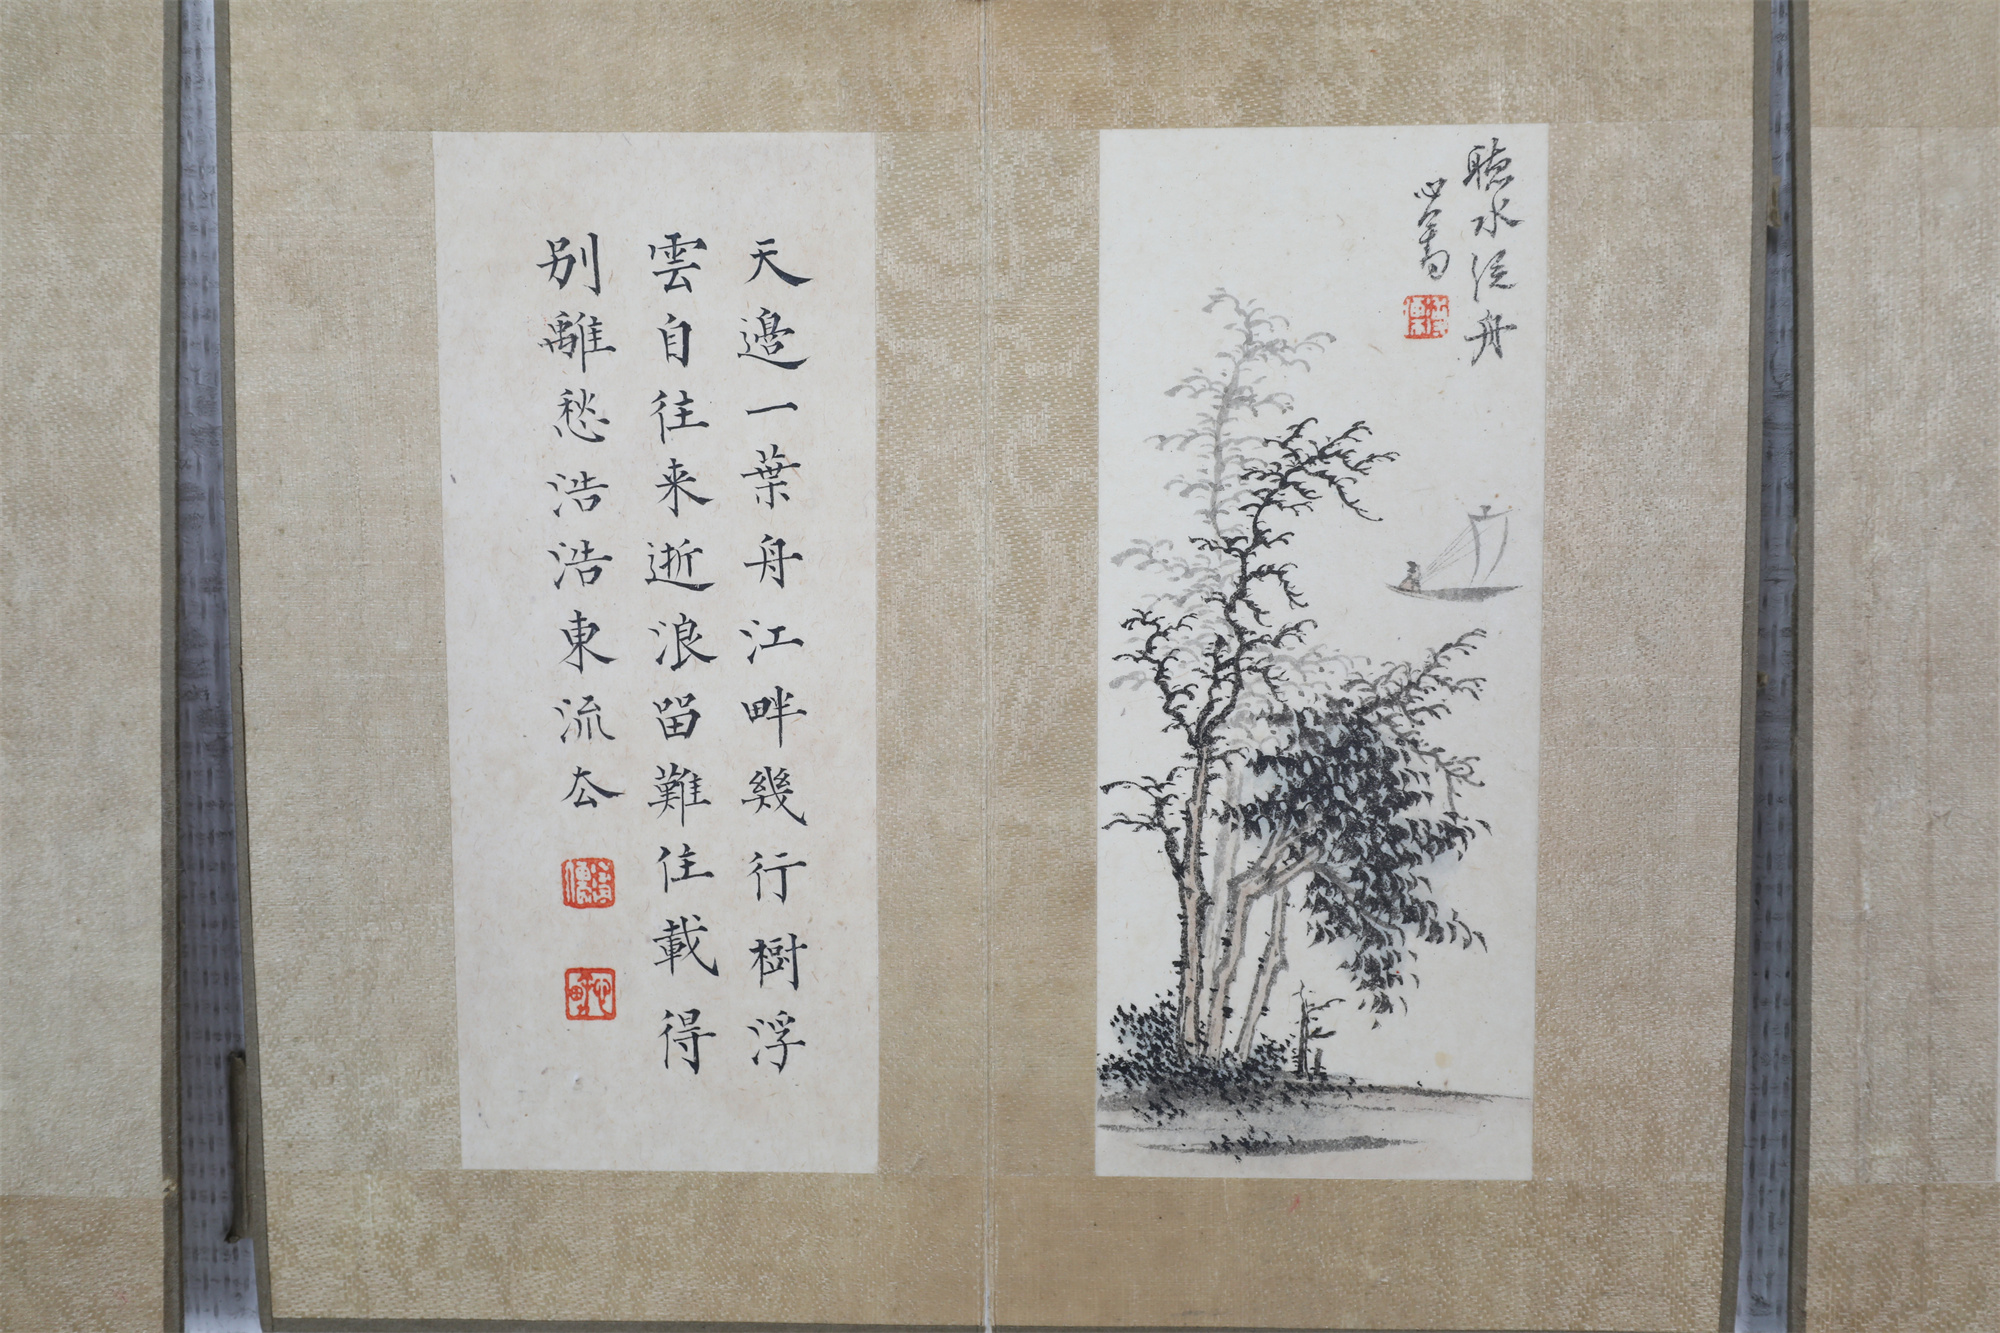 聴水泛舟
心畬
天邉一葉舟江畔幾行樹浮
雲自往来逝浪留難住載得
別離愁浩浩東流厺